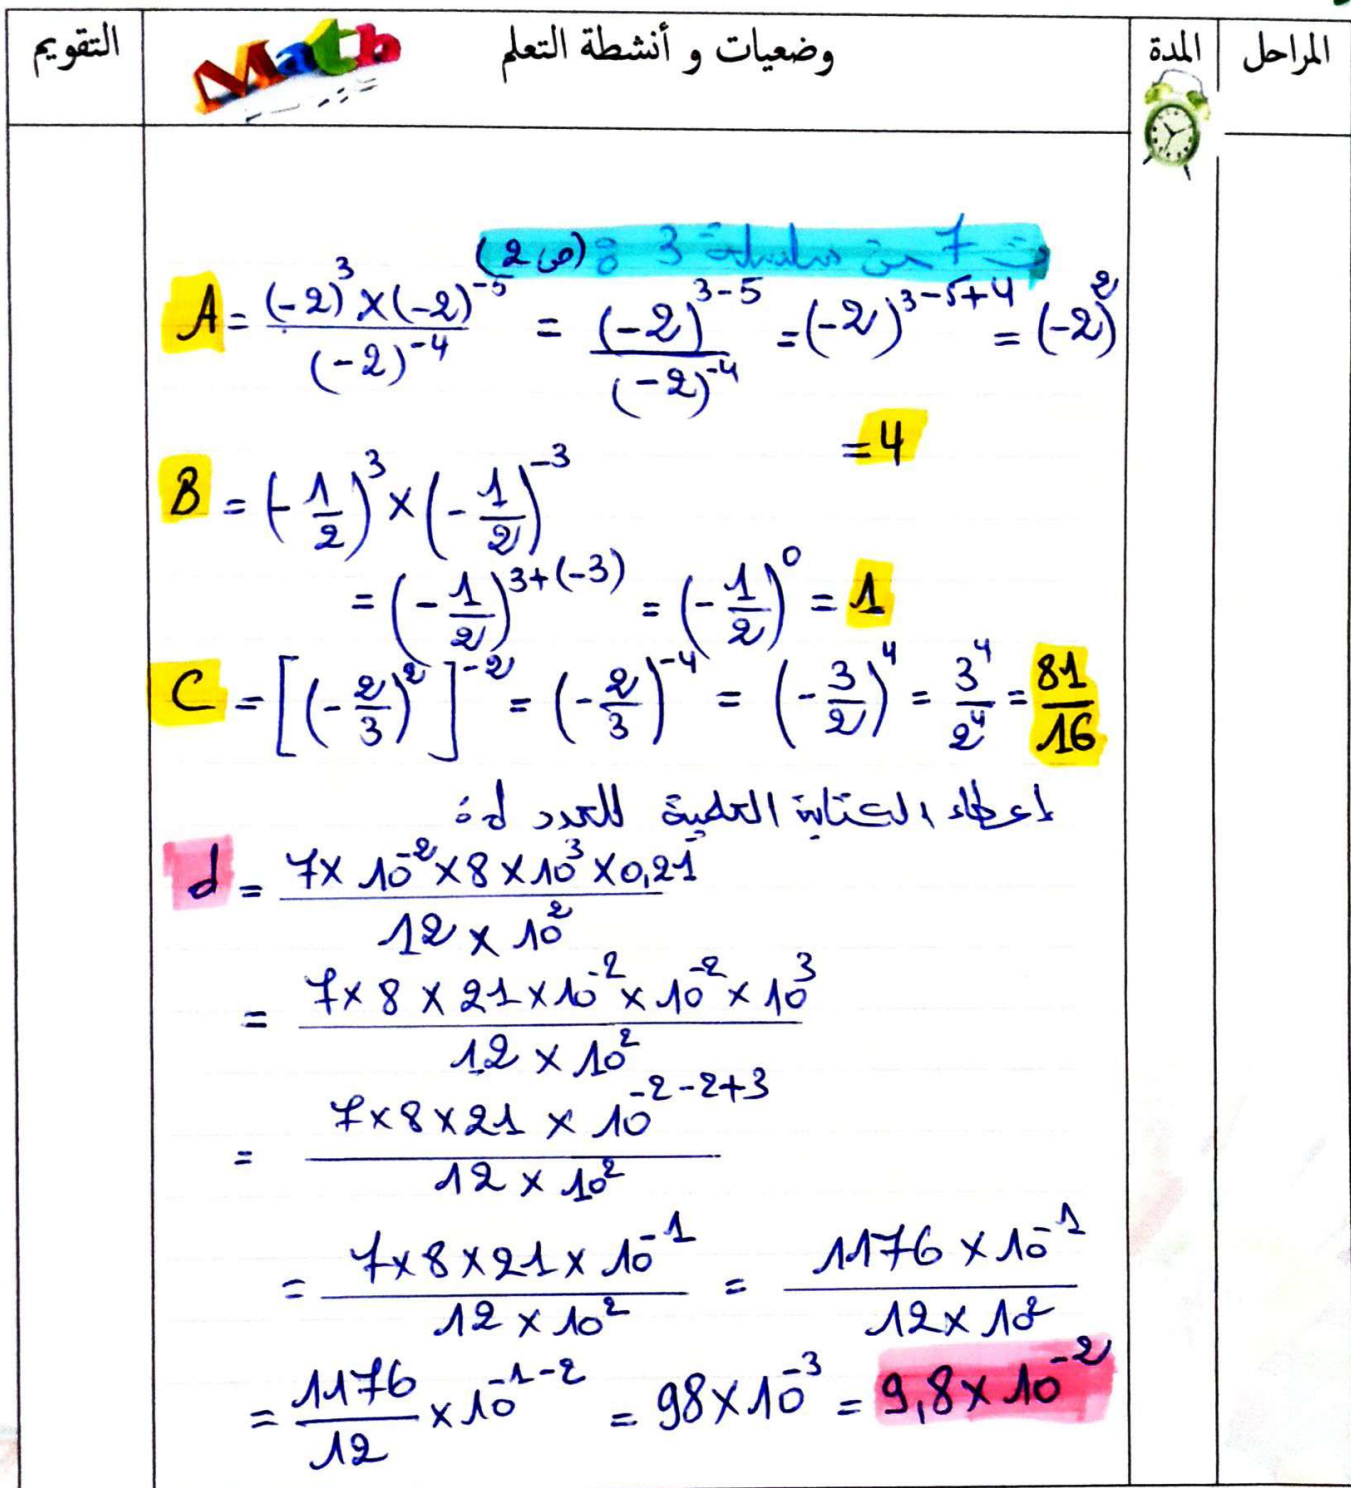 المراحل المدة وضعيات و أنشطة التعلم Math التقويم
ت 7 من سلسلة 3 : (ص 2)
A = ((-2)^3 × (-2)^-5) / (-2)^-4 = (-2)^3-5 / (-2)^-4 = (-2)^3-5+4 = (-2)^2
= 4
B = (-1/2)^3 × (-1/2)^-3
= (-1/2)^3+(-3) = (-1/2)^0 = 1
C = [(-2/3)^2]^-2 = (-2/3)^-4 = (-3/2)^4 = 3^4/2^4 = 81/16
إعطاء الكتابة العلمية للعدد d :
d = (7 × 10^-2 × 8 × 10^3 × 0,21) / (12 × 10^2)
= (7 × 8 × 21 × 10^-2 × 10^-2 × 10^3) / (12 × 10^2)
= (7 × 8 × 21 × 10^-2-2+3) / (12 × 10^2)
= (7 × 8 × 21 × 10^-1) / (12 × 10^2) = (1176 × 10^-1) / (12 × 10^2)
= 1176/12 × 10^-1-2 = 98 × 10^-3 = 9,8 × 10^-2